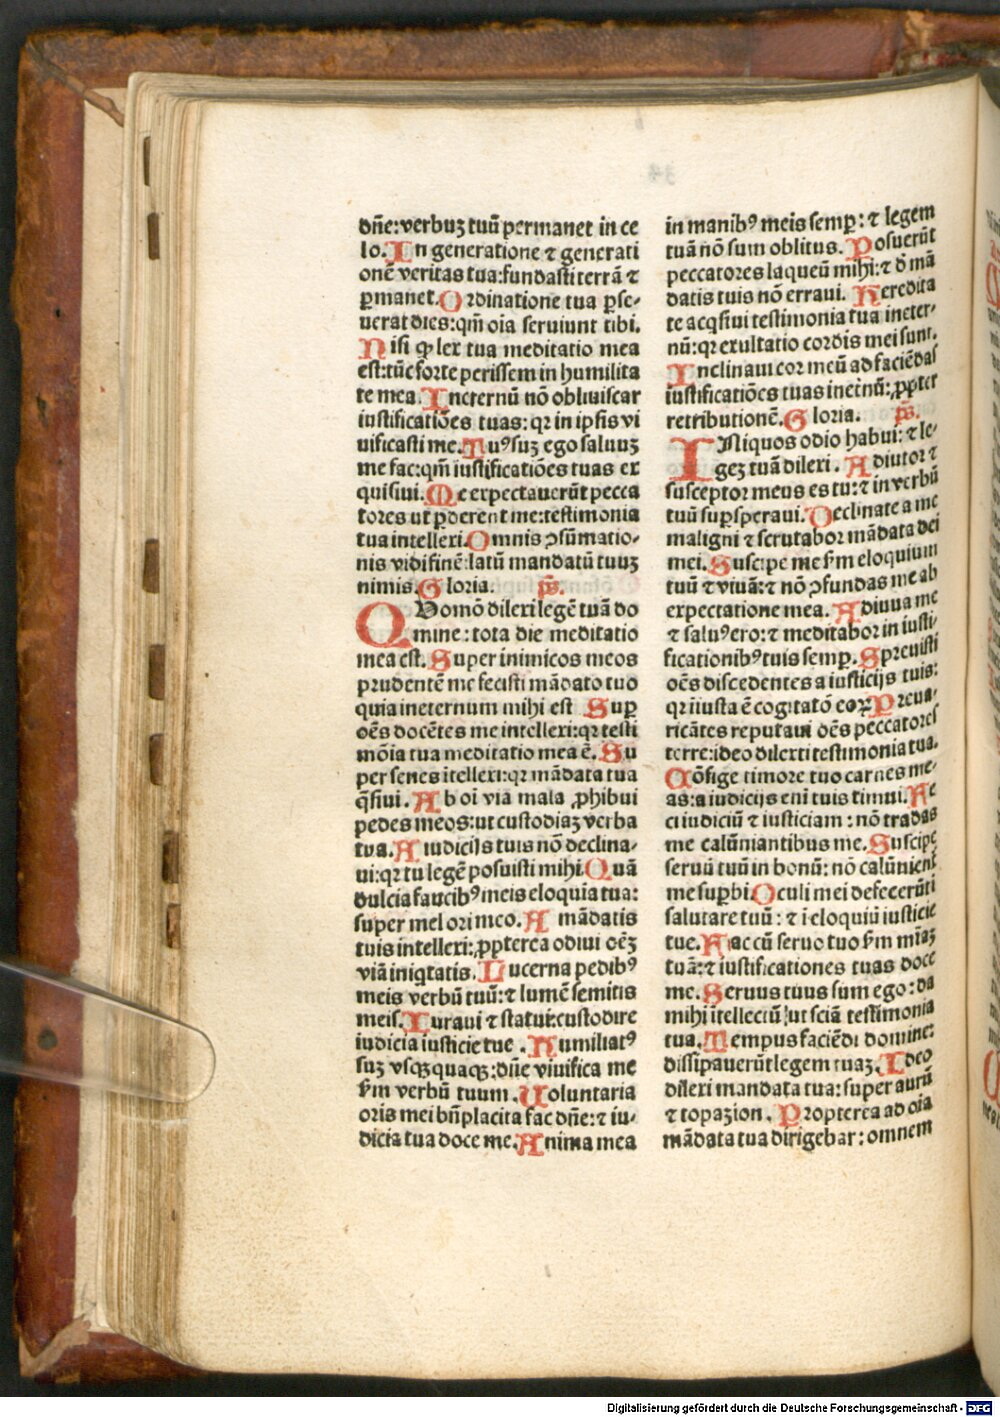 dñe:verbuʒ tuū permanet in ce
lo.In generatione ⁊ generati
onē veritas tua:fundasti terrā ⁊
ꝑmanet.Ordinatione tua ꝑse-
uerat dies:qm̄ oīa seruiunt tibi.
Nisi ꝙ lex tua meditatio mea
est:tūc forte perissem in humilita
te mea.Ineternū nō obliuiscar
iustificatiōes tuas:qꝛ in ipsis vi
uificasti me.Tu⁹suʒ ego saluuʒ
me fac:qm̄ iustificatiōes tuas ex
quisiui.Me expectauerūt pecca
tores ut ꝑderent me:testimonia
tua intellexi.Omnis ↄsūmatio-
nis vidi finē:latū mandatū tuuʒ
nimis.Gloria. ps̄.
QUomō dilexi legē tuā do
mine:tota die meditatio
mea est.Super inimicos meos
prudentē me fecisti mādato tuo
quia ineternum mihi est Suꝑ
oēs docētes me intellexi:qꝛ testi
mōia tua meditatio mea ē.Su
per senes ītellexi:qꝛ mādata tua
q̄siui.Ab oī via mala ꝓhibui
pedes meos:ut custodiaʒ verba
tua.A iudicijs tuis nō declina-
ui:qꝛ tu legē posuisti mihi.Quā
dulcia faucib⁹ meis eloquia tua:
super mel ori meo.A mādatis
tuis intellexi:ꝓpterea odiui oēʒ
viā iniq̄tatis.Lucerna pedib⁹
meis verbū tuū:⁊ lumē semitis
meis.Iuraui ⁊ statui:custodire
iudicia iusticie tue.Humiliat⁹
suʒ vsqʒquaqʒ:dñe viuifica me
ẜm verbū tuum.Uoluntaria
oris mei bn̄placita fac dñe:⁊ iu-
dicia tua doce me.Anima mea
in manib⁹ meis semꝑ:⁊ legem
tuā nō sum oblitus.Posuerūt
peccatores laqueū mihi:⁊ ð mā
datis tuis nō erraui.Heredita
te acq̄siui testimonia tua ineter-
nū:qꝛ exultatio cordis mei sunt.
Inclinaui cor meū ad faciēdas
iustificatiōes tuas ineternū:ꝓpter
retributionē.Gloria. ps̄.
INiquos odio habui:⁊ le-
geʒ tuā dilexi.Adiutor ⁊
susceptor meus es tu:⁊ in verbū
tuū supsperaui.Declinate a me
maligni ⁊ scrutabor mādata dei
mei.Suscipe me ẜm eloquium
tuū ⁊ viuā:⁊ nō ↄfundas me ab
expectatione mea.Adiuua me
⁊ salu⁹ero:⁊ meditabor in iusti-
ficationib⁹tuis semꝑ.Spreuisti
oēs discedentes a iusticijs tuis:
qꝛ iiusta ē cogitatō eoꝝ Preua-
ricātes reputaui oēs peccatores
terre:ideo dilexi testimonia tua.
Cōfige timore tuo carnes me-
as:a iudicijs enī tuis timui.Fe
ci iudiciū ⁊ iusticiam:nō tradas
me calūniantibus me.Suscipe
seruū tuū in bonū:nō calūnient
me suꝑbi.Oculi mei defecerūt
salutare tuū:⁊ ī eloquiū iusticie
tue.Fac cū seruo tuo ẜm mīaʒ
tuā:⁊ iustificationes tuas doce
me.Seruus tuus sum ego:da
mihi ītellectū ut sciā testimonia
tua.Tempus faciēdi domine:
dissipauerūt legem tuaʒ.Ideo
dilexi mandata tua:super aurū
⁊ topazion.Propterea ad oīa
mādata tua dirigebar:omnem
Digitalisierung gefördert durch die Deutsche Forschungsgemeinschaft - DFG